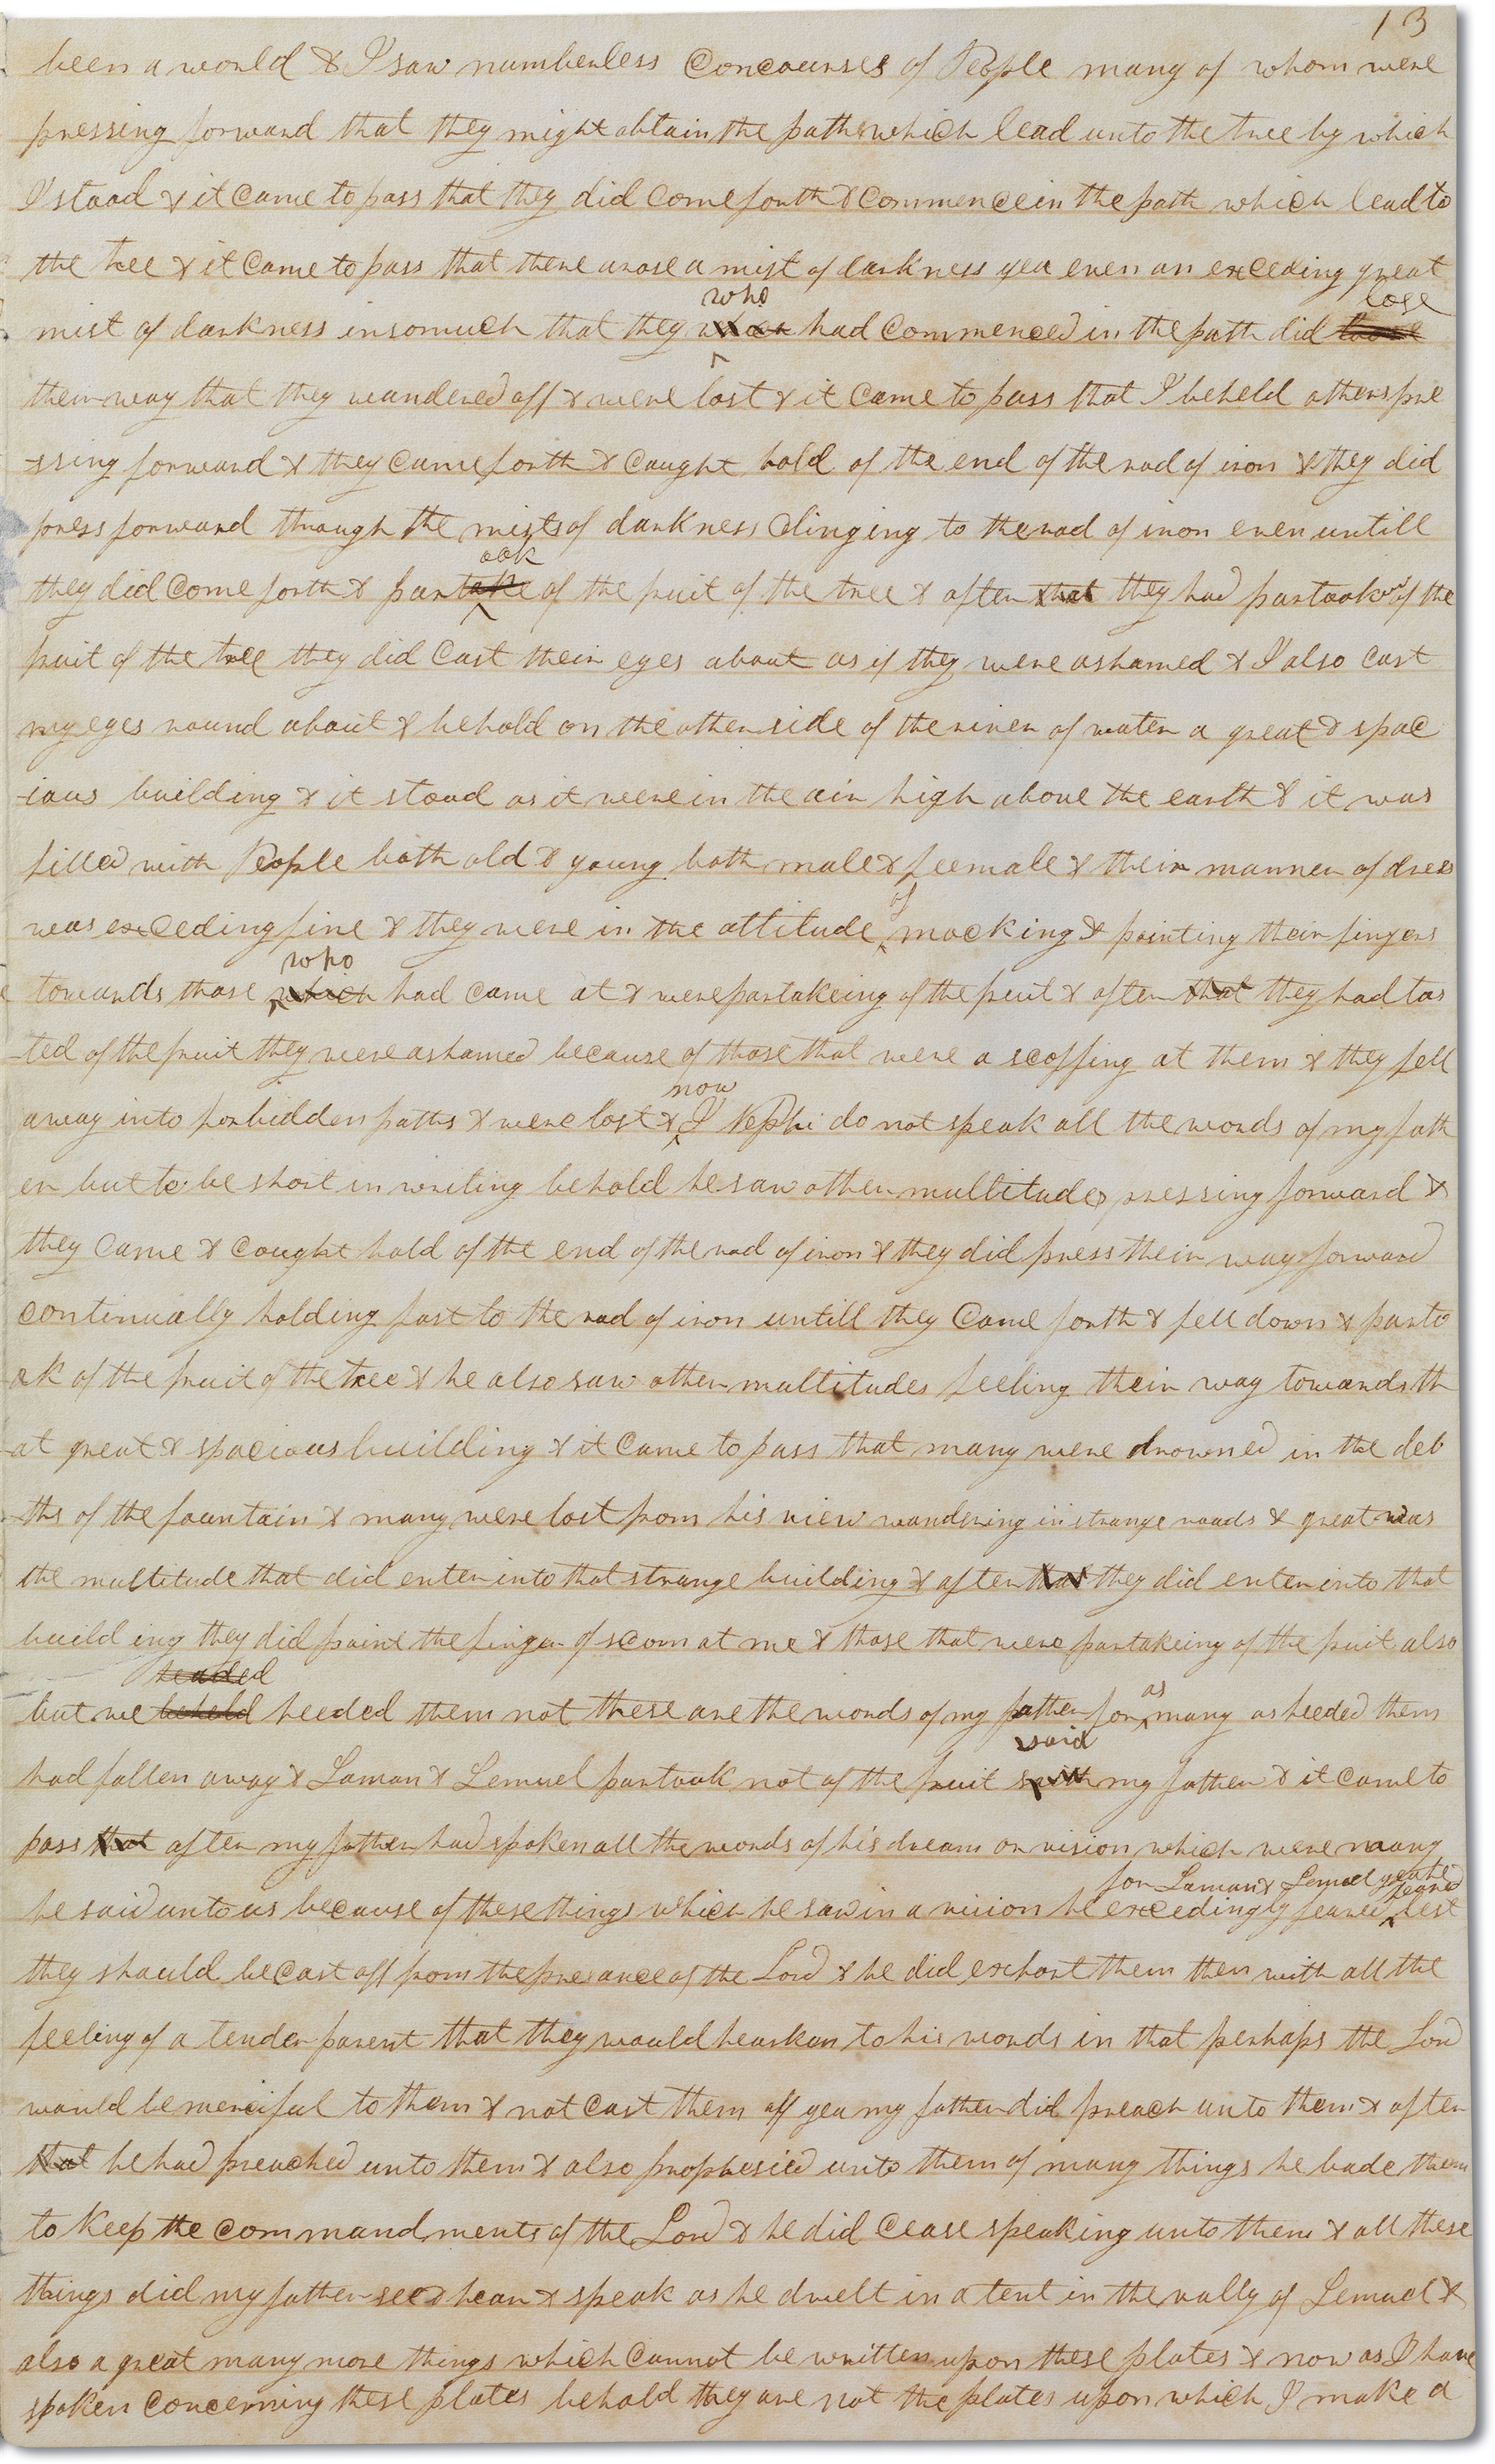 13
been a world & I saw numberless Concourses of People many of whom were
pressing forward that they might obtain the path which lead unto the tree by which
I stood & it Came to pass that they did Come forth & Commence in the path which lead to
the tree & it Came to pass that there arose a mist of darkness yea even an exceding great
who lose
mist of darkness insomuch that they had Commenced in the path did loose
their way that they wandered off & were lost & it Came to pass that I beheld others pre
-ssing forward & they Came forth & Caught hold of the end of the rod of iron & they did
press forward through the mists of darkness Clinging to the rod of iron even untill
ook
they did Come forth & partake of the fruit of the tree & after that they had partook of the
fruit of the tree they did Cast their eyes about as if they were ashamed & I also Cast
my eyes round about & behold on the other side of the river of water a great & spac
-ious building & it stood as it were in the air high above the earth & it was
filled with People both old & young both male & feemale & their manner of dress
of
was exceding fine & they were in the attitude mocking & pointing their fingers
who
towards those which had came at & were partakeing of the fruit & after that they had tas
-ted of the fruit they were ashamed because of those that were a scoffing at them & they fell
now
away into forbidden paths & were lost & I Nephi do not speak all the words of my fath
er but to be short in writing behold he saw other multitudes pressing forward &
they Came & Caught hold of the end of the rod of iron & they did press their way forward
continually holding fast to the rod of iron untill they Came forth & fell down & parto
ok of the fruit of the tree & he also saw other multitudes feeling their way towards th
-at great & spacious building & it Came to pass that many were drowned in the deb
ths of the fountain & many were lost from his view wandering in strange roads & great was
the multitude that did enter into that strange building & after that they did enter into that
build ing they did point the finger of scorn at me & those that were partakeing of the fruit also
headed
but we beheld heeded them not these are the words of my father for many as heeded them
as
said
had fallen away & Laman & Lemuel partook not of the fruit saith my father & it Came to
pass that after my father had spoken all the words of his dream or vision which were many
for Laman & Lemuel yea he feared
he said unto us because of these things which he saw in a vision he exceedingly feared lest
they should be Cast off from the presance of the Lord & he did exhort them then with all the
feeling of a tender parent that they would hearken to his words in that perhaps the Lord
would be merciful to them & not Cast them off yea my father did preach unto them & after
that he had preached unto them & also prophesied unto them of many things he bade them
to Keep the Commandments of the Lord & he did Cease speaking unto them & all these
things did my father see & hear & speak as he dwelt in a tent in the vally of Lemuel &
also a great many more things which Cannot be written upon these plates & now as I have
spoken Concerning these plates behold they are not the plates upon which I make a